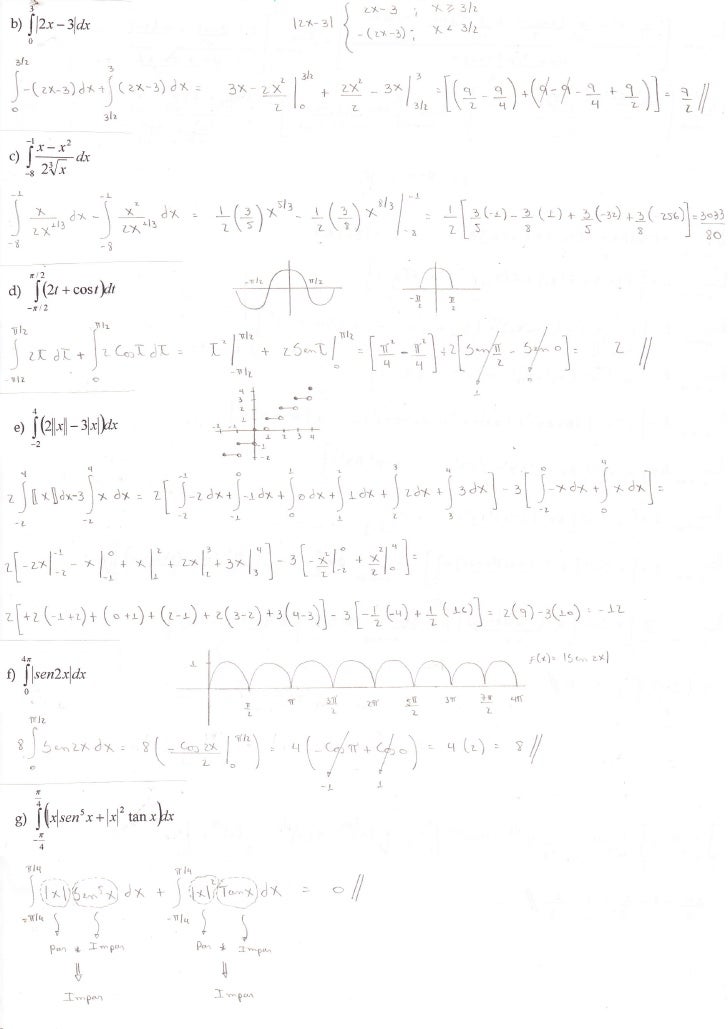 b) ∫₀³ |2x − 3| dx    |2x−3| { 2x−3 ; x ≥ 3/2
−(2x−3) ; x < 3/2
∫₀^{3/2} −(2x−3) dx + ∫_{3/2}^{3} (2x−3) dx = 3x − 2x²/2 |₀^{3/2} + 2x²/2 − 3x |_{3/2}^{3} = [(9/2 − 9/4) + (9 − 9 − 9/4 + 9/2)] = 9/2 //
c) ∫_{−8}^{−1} (x − x²)/(2∛x) dx
∫_{−8}^{−1} x/(2x^{1/3}) dx − ∫_{−8}^{−1} x²/(2x^{1/3}) dx = 1/2 (3/5) x^{5/3} − 1/2 (3/8) x^{8/3} |_{−8}^{−1} = 1/2 [3/5 (−1) − 3/8 (1) + 3/5 (−32) + 3/8 (256)] = 3033/80
d) ∫_{−π/2}^{π/2} (2t + cos t) dt    −π/2    π/2    −π/2    π/2
∫_{−π/2}^{π/2} 2t dt + ∫₀^{π/2} 2 cos t dt = t² |_{−π/2}^{π/2} + 2 sen t |₀^{π/2} = [π²/4 − π²/4] + 2 [sen π/2 − sen 0] = 2 //
1    0
e) ∫_{−2}^{4} (2‖x‖ − 3|x|) dx    4 3 2 1    −2 −1    1 2 3 4    −1 −2
2 ∫_{−2}^{4} ⟦x⟧ dx − 3 ∫_{−2}^{4} x dx = 2 [∫_{−2}^{−1} −2 dx + ∫_{−1}^{0} −1 dx + ∫₀¹ 0 dx + ∫₁² 1 dx + ∫₂³ 2 dx + ∫₃⁴ 3 dx] − 3 [∫_{−2}^{0} −x dx + ∫₀⁴ x dx] =
2 [−2x |_{−2}^{−1} − x |_{−1}^{0} + x |₁² + 2x |₂³ + 3x |₃⁴] − 3 [−x²/2 |_{−2}^{0} + x²/2 |₀⁴] =
2 [+2 (−1+2) + (0+1) + (2−1) + 2 (3−2) + 3 (4−3)] − 3 [−1/2 (−4) + 1/2 (16)] = 2(9) − 3(10) = −12
f) ∫₀^{4π} |sen2x| dx    1    π/2    π    3π/2    2π    5π/2    3π    7π/2    4π    F(x) = |Sen 2x|
8 ∫₀^{π/2} Sen 2x dx = 8 (−Cos 2x/2 |₀^{π/2}) = 4 (−Cos π + Cos 0) = 4 (2) = 8 //
−1    1
g) ∫_{−π/4}^{π/4} (|x| sen⁵ x + |x|² tan x) dx
∫_{−π/4}^{π/4} |x| Sen⁵x dx + ∫_{−π/4}^{π/4} |x|² Tanx dx = 0 //
Par * Impar    Par * Impar
⇓    ⇓
Impar    Impar